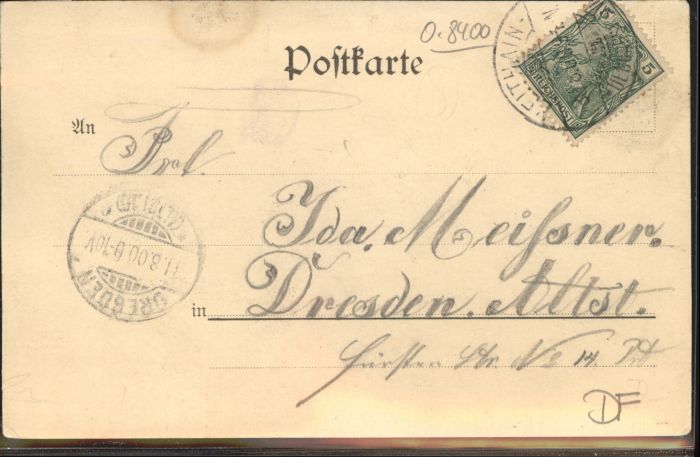 O-8400
Postkarte
5 5
ZEITHAIN
An
Frl.
Ida Meißner.
DRESDEN
11.8.00.6-10V
in Dresden. Altst.
Fürsten Str. No 14 Pt
DF